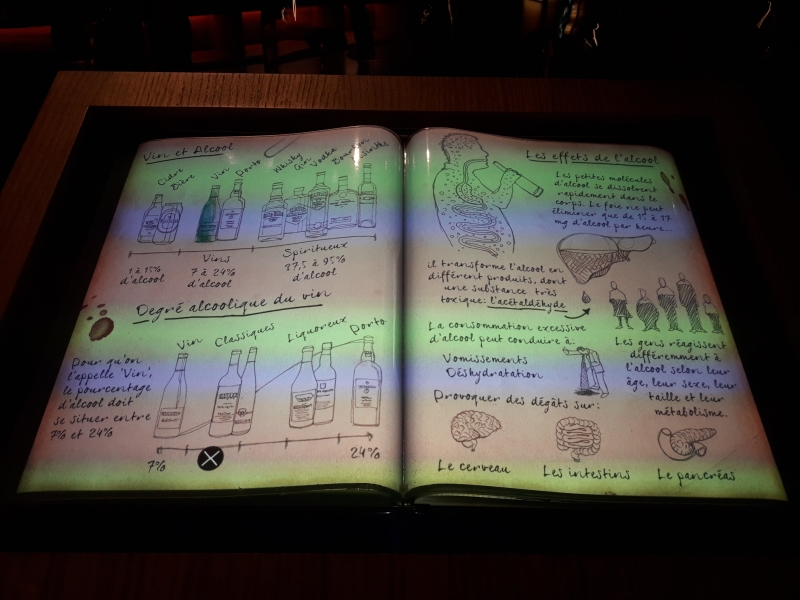 Vin et Alcool
Cidre
Bière
Vin
Porto
Whisky
Gin
Vodka
Bourbon
1 à 15%
d'alcool
Vins
7 à 24%
d'alcool
Spiritueux
37,5 à 95%
d'alcool
Degré alcoolique du vin
Vin
Classiques
Liquoreux
Porto
Pour qu'on
l'appelle 'Vin',
le pourcentage
d'alcool doit
se situer entre
7% et 24%
7%
24%
Les effets de l'alcool
Les petites molécules
d'alcool se dissolvent
rapidement dans le
corps. Le foie ne peut
éliminer que de 15 à 17
mg d'alcool par heure...
il transforme l'alcool en
différent produits, dont
une substance très
toxique: l'acétaldéhyde
La consommation excessive
d'alcool peut conduire à:
Vomissements
Déshydratation
Provoquer des dégâts sur:
Le cerveau
Les intestins
Le pancréas
Les gens réagissent
différemment à
l'alcool selon leur
âge, leur sexe, leur
taille et leur
métabolisme.